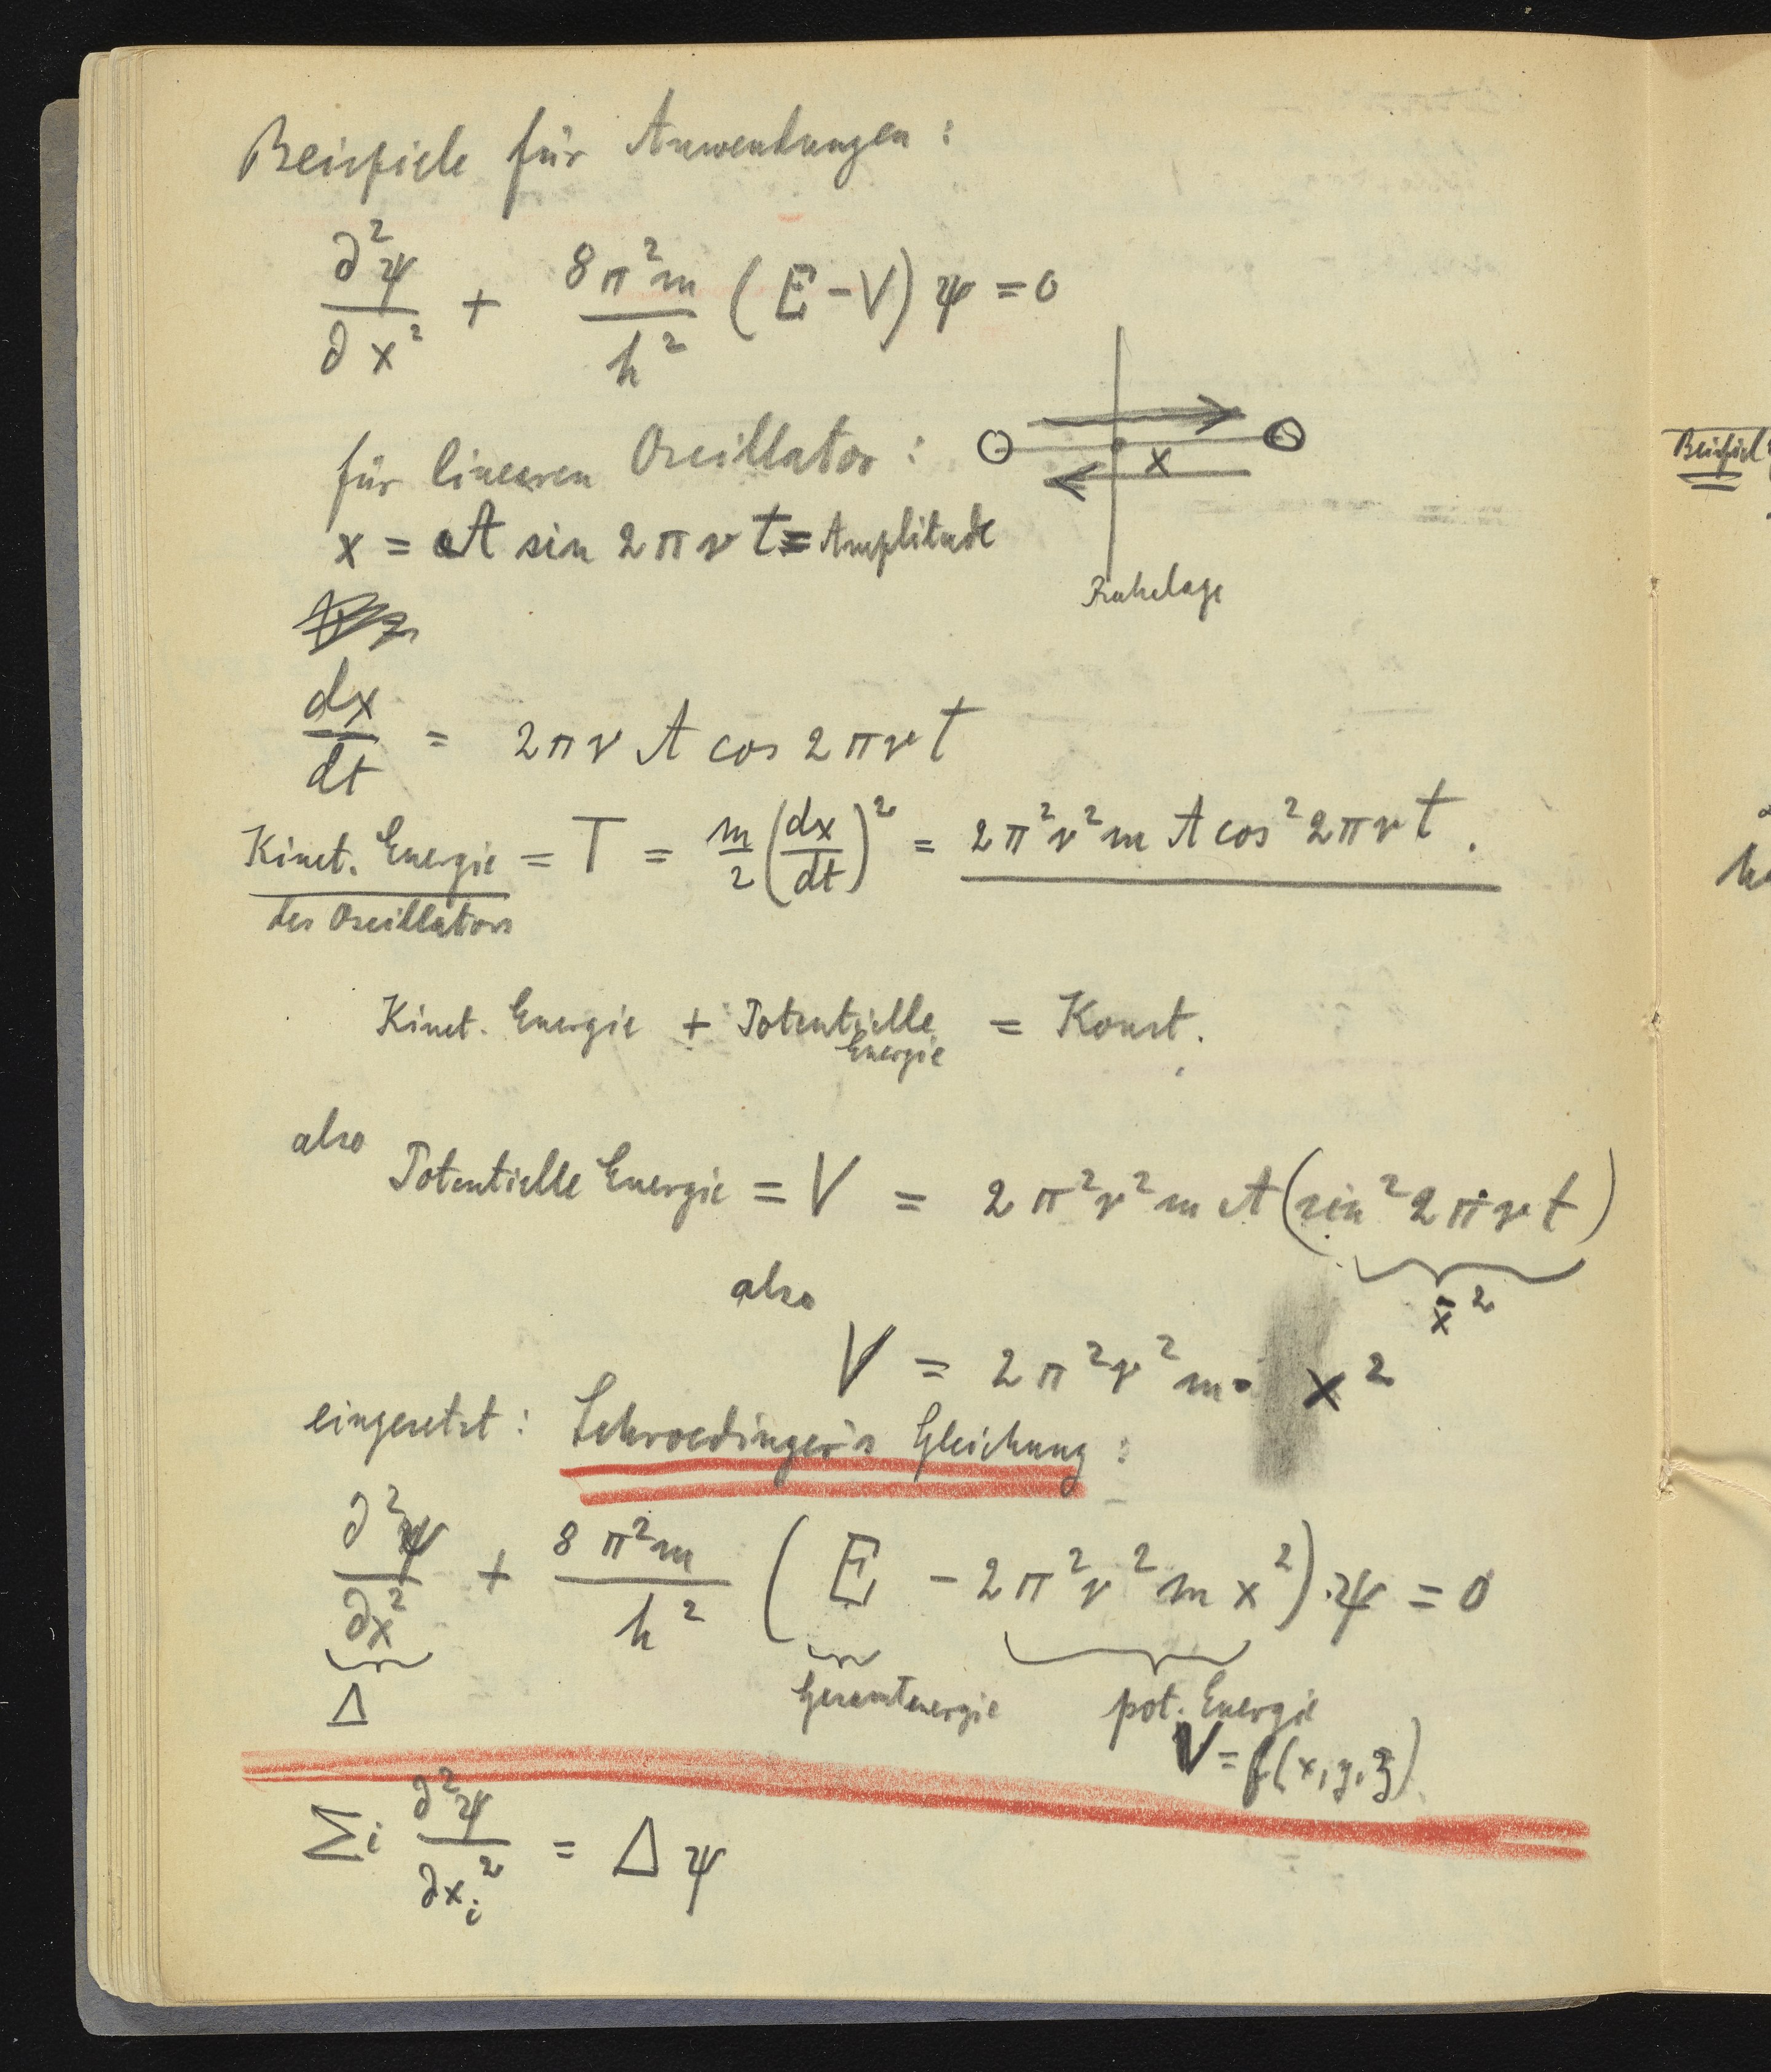 Beispiele für Anwendungen:
∂²ψ/∂x² + 8π²m/h² (E-V) ψ = 0
für linearen Oscillator:
x
x = A sin 2πνt = Amplitude
Ruhelage
dx/dt = 2πν A cos 2πνt
Kinet. Energie = T = m/2 (dx/dt)² = 2π²ν²m A cos² 2πνt.
des Oscillators
Kinet. Energie + Potentielle Energie = Konst.
also Potentielle Energie = V = 2π²ν²m A (sin² 2πνt)
x²
also
V = 2π²ν²m · x²
eingesetzt: Schroedinger's Gleichung:
∂²ψ/∂x² + 8π²m/h² (E - 2π²ν²m x²).ψ = 0
Δ Gesamtenergie pot. Energie
V = f(x,y,z)
Σi ∂²ψ/∂xi² = Δψ
Beispiel